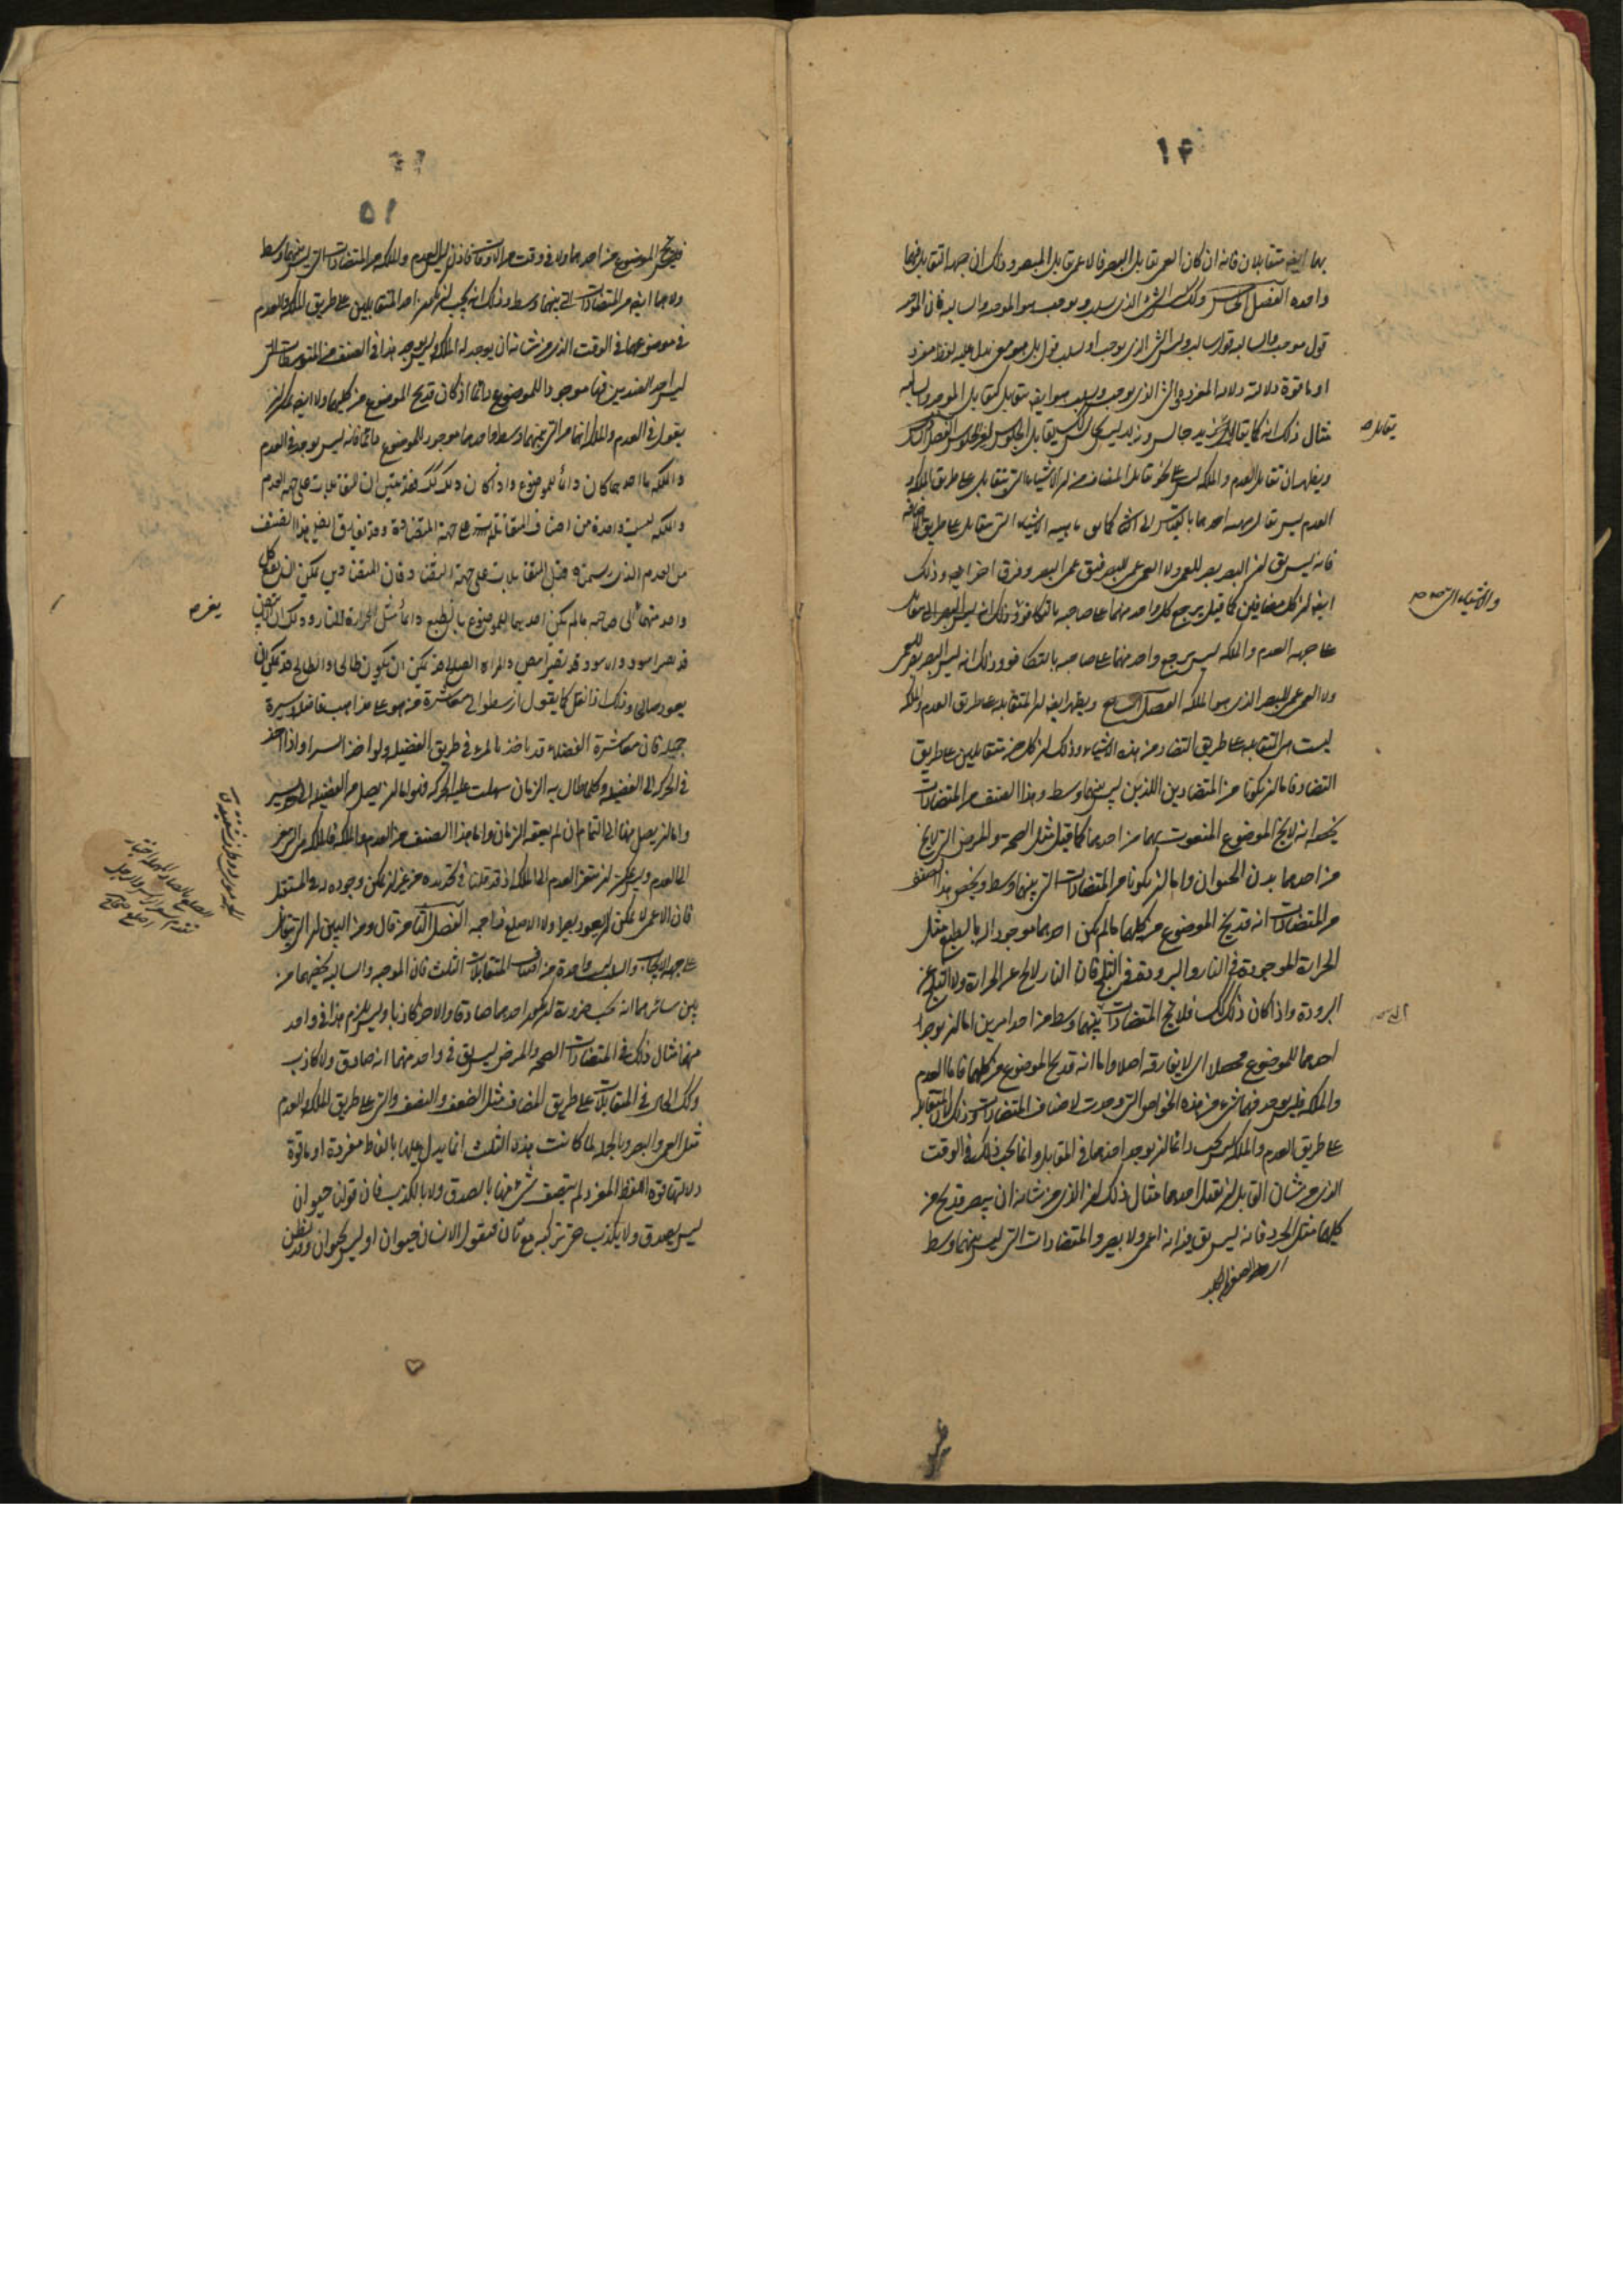 ١٤
بهما ايضا متقابلان فانه ان كان العمى يقابل البصر فالاعمى يقابل المبصر وذلك ان جهة التقابل فيهما
واحدة الفصل الخامس وكذلك الشئ الذى يسلب ويوجب هو الموجبة والسالبة فان الموجبة
قول موجب والسالبة قول سالب وليس الشئ الذى يوجب او يسلب قول بل هو معنى يدل عليه لفظ مفرد
او ما قوة دلالته دلالة المفرد والشئ الذى يوجب ويسلب هو ايضا متقابل كتقابل الموجبة والسالبة
مثال ذلك انه كما يقابل زيد جالس زيد ليس بجالس كذلك يقابل الجلوس لغير الجلوس الفصل السادس
ويظهر ان تقابل العدم والملكة ليس على نحو تقابل المضاف من ان الاشياء التى تتقابل على طريق الملكة و
العدم ليس تقال ماهية احدهما بالقياس الى الاخر كما هى ماهية الاشياء التى تتقابل على طريق الاضافة
فانه ليس يقال ان البصر بصر للعمى ولا العمى عمى للبصر فيقال عمى البصر وفرق اخر ايضا وذلك
ايضا ان كل مضافين كما قيل يرجع كل واحد منهما على صاحبه بالتكافؤ وذلك انه ليس البصر الذى يقال
على جهة العدم والملكة ليس يرجع واحد منهما على صاحبه بالتكافؤ وذلك انه ليس البصر بصر للعمى
ولا العمى عمى للبصر الذى هو الملكة الفصل السابع ويظهر ايضا ان المتقابلة على طريق العدم والملكة
ليست هى المتقابلة على طريق التضاد من هذه الاشياء وذلك ان كل متقابلين على طريق
التضاد فاما ان يكونا من المتضادين اللذين ليس بينهما وسط وهذا الصنف من المتضادات
يخصها انه لا يخلو الموضوع المنعوت بهما من احدهما كما قيل مثل الصحة والمرض التى لا يخلو
من احدهما بدن الحيوان واما ان يكونا من المتضادات التى بينهما وسط ويخص هذا الصنف
من المتضادات انه قد يخلو الموضوع من كليهما ما لم يكن احدهما موجودا له بالطبع مثل
الحرارة الموجودة فى النار والبرودة فى الثلج فان النار لا يخلو عن الحرارة ولا الثلج عن
البرودة واذا كان ذلك كذلك فلا يخلو المتضادات بينهما وسط من احد امرين اما ان يوجد
احدهما للموضوع محصلا اى لا يفارقه اصلا واما انه قد يخلو الموضوع من كليهما فاما العدم
والملكة فليس يوجد فيهما شئ من هذه الخواص التى وجدت لاصناف المتضادات وذلك ان المتقابلة
على طريق العدم والملكة ليس يجب دائما ان يوجد احدهما فى المقابل وانما يجب ذلك فى الوقت
الذى من شان القابل ان يقبل احدهما مثال ذلك ان الذى من شانه ان يبصر قد يخلو من
كليهما مثل الجرو فانه ليس يقال فيه انه اعمى ولا بصير والمتضادات التى ليس بينهما وسط
يقابل ص
والاشياء التى ص ص
التى ص
١٥
فليس يخلو الموضوع من احدهما ولا فى وقت من الاوقات فاذن ليس العدم والملكة من المتضادات التى ليس بينهما وسط
ولا هما ايضا من المتضادات التى بينهما وسط وذلك انه يجب ان يكون احد المتقابلين على طريق الملكة والعدم
فى موضوعهما فى الوقت الذى من شانه ان يوجد له الملكة وليس يوجد هذا فى الصنف من المتوسطات التى
ليس احد الضدين فيها موجودا للموضوع دائما اذ كان قد يخلو الموضوع من كليهما ولا ايضا يمكن ان
يقول فى العدم والملكة انهما من التى بينهما وسط واحدهما موجود للموضوع دائما فانه ليس يوجد فى العدم
والملكة ما احدهما كان دائما للموضوع واذا كان ذلك كذلك فقد تبين ان المتقابلات على جهة العدم
والملكة ليست واحدة من اصناف المتقابلة على جهة المضادة وقد يفارق ايضا هذا الصنف
من العدم الذى رسمت قبل المتقابلات على جهة التضاد فان المتضادين يمكن ان يتغير كل
واحد منهما الى صاحبه ما لم يكن احدهما للموضوع بالطبع دائما مثل الحرارة للنار وذلك ان الابيض
قد يصير اسود والاسود قد يصير ابيض والمراة الصالح قد يمكن ان يكون طالحا والطالح قد يمكن ان
يعود صالحا وذلك اذا نقل كما يقول ارسطو الى معاشرة من هو على مذاهب فاضلة وسيرة
جميلة فان معاشرة الفضلاء قد ياخذ بالمرء فى طريق الفضيلة ولو اخذا يسيرا واذا اخذ
فى الحركة الى الفضيلة وكلما طال به الزمان سهلت عليه الحركة فيها
واما ان يصل منها الى التمام ان لم يعقه الزمان واما هذا الصنف من العدم والملكة فالملكة هى التى تتغير
الى العدم وليس يمكن ان يتغير العدم الى الملكة اذ قد قلنا فى تحديده من غير ان يمكن وجوده له فى المستقبل
فان الاعمى لا يمكن ان يعود بصيرا ولا الاصلع ذا جمة الفصل الثامن قال ومن البين ان التى تتقابل
على جهة الايجاب والسلب ليس واحدة من اصناف المتقابلات الثلث فان الموجبة والسالبة يخصهما من
بين سائرها انه يجب ضرورة ان يكون احدهما صادقا والاخر كاذبا وليس يلزم هذا فى واحد
منها مثال ذلك فى المتضادات الصحة والمرض ليس يقال فى واحد منهما انه صادق ولا كاذب
وكذلك الحال فى المتقابلات على طريق المضاف مثل الضعف والنصف والتى على طريق الملكة والعدم
مثل العمى والبصر وبالجملة لما كانت هذه الثلث انما يدل عليها بالفاظ مفردة او ما قوة
دلالتها قوة اللفظ المفرد لم يتصف شئ منها بالصدق ولا بالكذب فان قولنا حيوان
ليس يصدق ولا يكذب حتى تركبه مع ثان فنقول الانسان حيوان او ليس بحيوان وقد يظن
يتغير ص